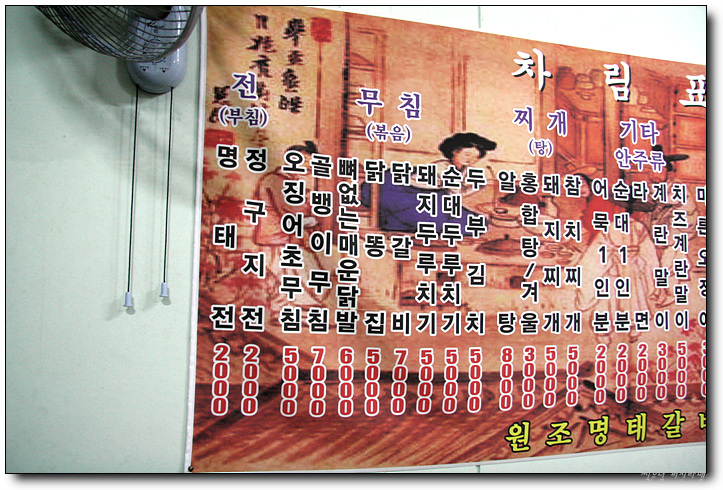 차림표
전
(부침)
명태전 2000
정구지전 2000
무침
(볶음)
오징어초무침 5000
골뱅이무침 7000
뼈없는매운닭발 6000
닭똥집 5000
닭갈비 7000
돼지두루치기 5000
순대두루치기 5000
두부김치 5000
찌개
(탕)
알탕 8000
홍합탕/겨울 3000
돼지찌개 5000
참치찌개 5000
기타
안주류
어묵1인분 2000
순대1인분 2000
라면 2000
계란말이 3000
치즈계란말이 5000
마른오징어
원조명태갈비